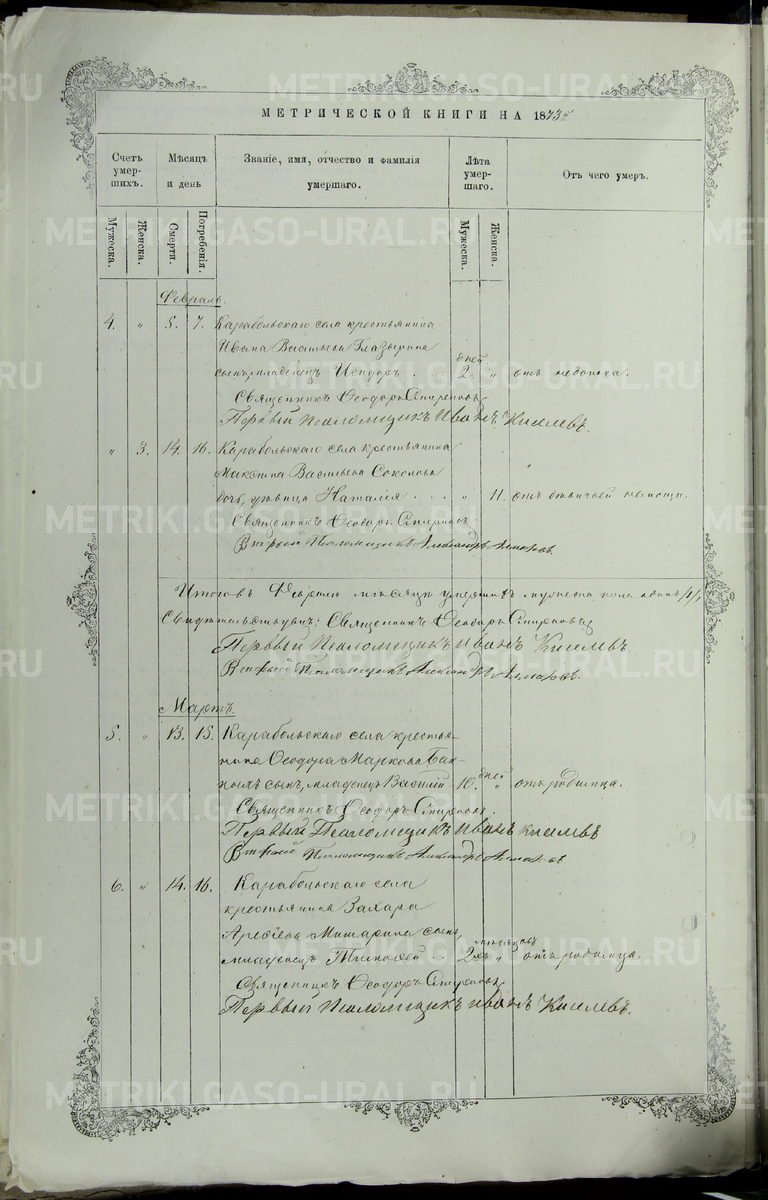 МЕТРИЧЕСКОЙ КНИГИ НА 1873
Счетъ умер-шихъ. Мѣсяцъ и день Званіе, имя, отчество и фамилія умершаго. Лѣта умер-шаго. Отъ чего умеръ.
Мужеска. Женска. Смерти. Погребенія. Мужеска. Женска.
Февраль.
4. " 5. 7. Карабольскаго села крестьянина
Ивана Васильева Глазырина
дней
сынъ, младенецъ Исидоръ . 2. " отъ
Священникъ Ѳеодоръ Спиреновъ
Первый Псаломщикъ Иванъ Киселевъ.
" 3. 14. 16. Карабольскаго села крестьянина
Максима Васильева Соколова
дочь, Наталія . . . " 11. отъ немощи.
Священникъ Ѳеодоръ Спиреновъ
Второй Псаломщикъ Александръ
Итого въ Февралѣ мѣсяцѣ умершихъ мужеска пола одинъ /1/,
Свидѣтельствуемъ: Священникъ Ѳеодоръ Спиреновъ
Первый Псаломщикъ Иванъ Киселевъ.
Второй Псаломщикъ Александръ
Мартъ.
5. " 13. 15. Карабольскаго села крестья-
нина Ѳеодора Маркова
дней
сынъ, младенецъ Василій 10. " отъ родимца.
Священникъ Ѳеодоръ Спиреновъ.
Первый Псаломщикъ Иванъ Киселевъ
Второй Псаломщикъ Александръ
6. " 14. 16. Карабольскаго села
крестьянина Захара
Арефьева Мишарина сынъ,
мѣсяцовъ
младенецъ Тимоѳей . . 2хъ " отъ родимца.
Священникъ Ѳеодоръ Спиреновъ
Первый Псаломщикъ Иванъ Киселевъ.
METRIKI.GASO-URAL.RU